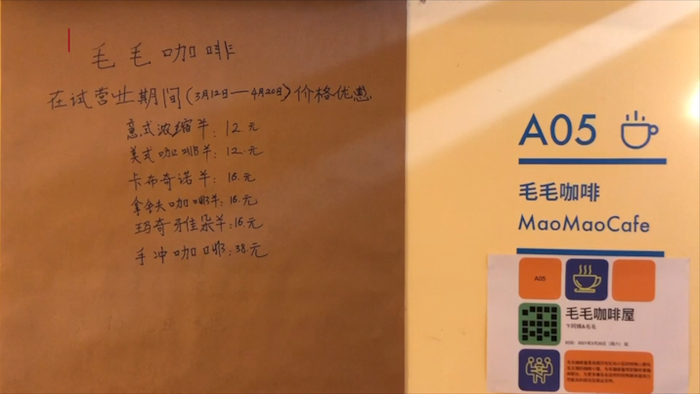 毛毛咖啡
在试营业期间(3月12日—4月20日)价格优惠.
意式浓缩羊：12元
美式咖啡羊：12元
卡布奇诺羊：16元
拿舍夫咖啡羊：16元
玛奇牙佳朵羊：16元
手冲咖啡：38元
A05
毛毛咖啡
MaoMaoCafe
A05
毛毛咖啡屋